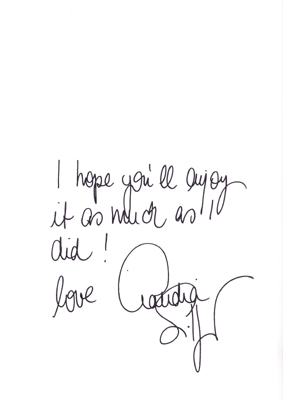 I hope you'll enjoy
it as much as I
did!
love Claudia